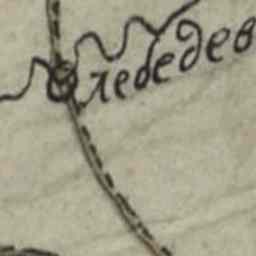 лебедев